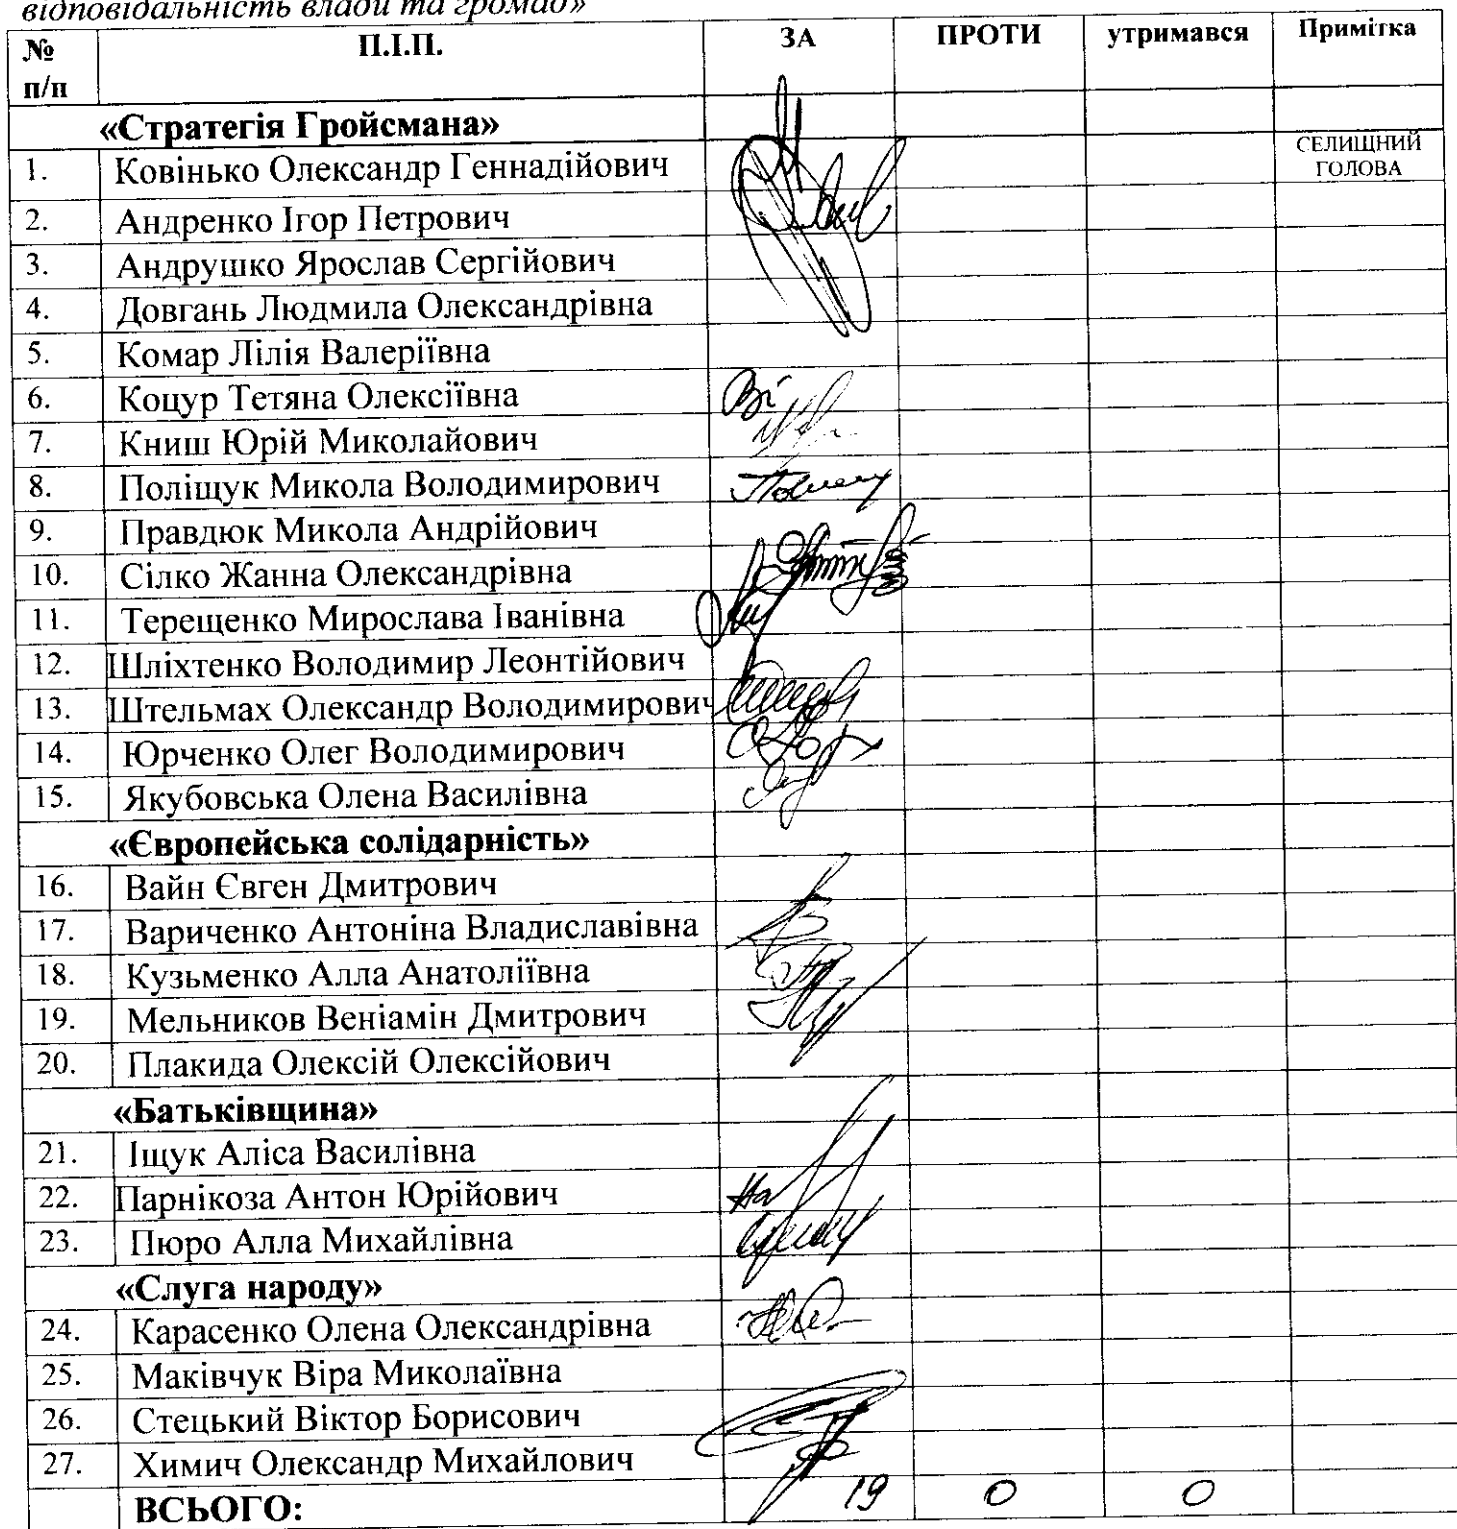 відповідальність влади та громад»
№ п/п П.І.П. ЗА ПРОТИ утримався Примітка
«Стратегія Гройсмана»
1. Ковінько Олександр Геннадійович СЕЛИЩНИЙ ГОЛОВА
2. Андренко Ігор Петрович
3. Андрушко Ярослав Сергійович
4. Довгань Людмила Олександрівна
5. Комар Лілія Валеріївна
6. Коцур Тетяна Олексіївна
7. Книш Юрій Миколайович
8. Поліщук Микола Володимирович
9. Правдюк Микола Андрійович
10. Сілко Жанна Олександрівна
11. Терещенко Мирослава Іванівна
12. Шліхтенко Володимир Леонтійович
13. Штельмах Олександр Володимирович
14. Юрченко Олег Володимирович
15. Якубовська Олена Василівна
«Європейська солідарність»
16. Вайн Євген Дмитрович
17. Вариченко Антоніна Владиславівна
18. Кузьменко Алла Анатоліївна
19. Мельников Веніамін Дмитрович
20. Плакида Олексій Олексійович
«Батьківщина»
21. Іщук Аліса Василівна
22. Парнікоза Антон Юрійович
23. Пюро Алла Михайлівна
«Слуга народу»
24. Карасенко Олена Олександрівна
25. Маківчук Віра Миколаївна
26. Стецький Віктор Борисович
27. Химич Олександр Михайлович
ВСЬОГО: 19 0 0